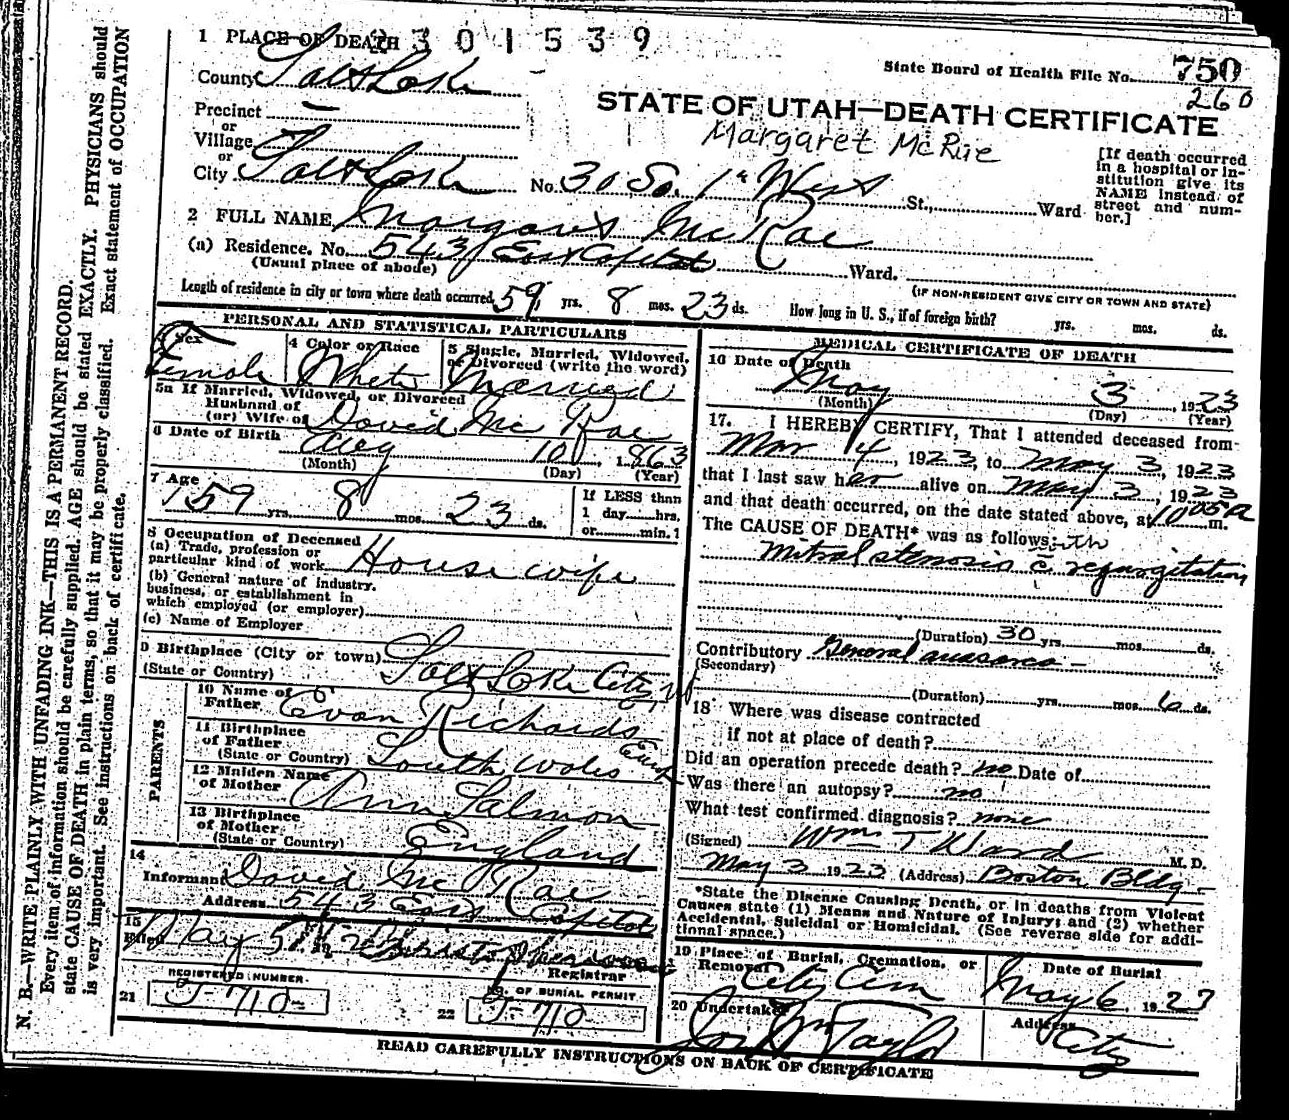 N. B.—WRITE PLAINLY WITH UNFADING INK—THIS IS A PERMANENT RECORD.
Every item of information should be carefully supplied. AGE should be stated EXACTLY. PHYSICIANS should
state CAUSE OF DEATH in plain terms, so that it may be properly classified. Exact statement of OCCUPATION
is very important. See instructions on back of certificate.
1 PLACE OF DEATH
2301539
State Board of Health File No. 750
260
County Salt Lake
STATE OF UTAH—DEATH CERTIFICATE
Margaret McRae
Precinct —
or
Village —
or
City Salt Lake No. 30 So. 1st West St., Ward
[If death occurred
in a hospital or in-
stitution give its
NAME instead of
street and num-
ber.]
2 FULL NAME Margaret McRae
(a) Residence. No. 543 East Capitol Ward.
(Usual place of abode)
(IF NON-RESIDENT GIVE CITY OR TOWN AND STATE)
Length of residence in city or town where death occurred 59 yrs. 8 mos. 23 ds. How long in U. S., if of foreign birth? yrs. mos. ds.
PERSONAL AND STATISTICAL PARTICULARS
Sex Female
4 Color or Race White
5 Single, Married, Widowed,
or Divorced (write the word)
Married
5a If Married, Widowed, or Divorced
Husband of
(or) Wife of David McRae
6 Date of Birth Aug 10, 1863
(Month) (Day) (Year)
7 Age
59 yrs. 8 mos. 23 ds.
If LESS than
1 day hrs.
or min. 1
8 Occupation of Deceased
(a) Trade, profession or
particular kind of work Housewife
(b) General nature of industry,
business, or establishment in
which employed (or employer)
(c) Name of Employer
9 Birthplace (City or town)
(State or Country) Salt Lake City, Ut
PARENTS
10 Name of
Father Evan Richards
11 Birthplace
of Father
(State or Country) South Wales
12 Maiden Name
of Mother Ann Salmon
13 Birthplace
of Mother
(State or Country) England
14
Informant David McRae
Address 543 East Capitol
15
Filed May 5
Registrar
REGISTERED NUMBER
21 J-710-
NO. OF BURIAL PERMIT
22 J-710-
MEDICAL CERTIFICATE OF DEATH
16 Date of Death
May 3, 1923
(Month) (Day) (Year)
17. I HEREBY CERTIFY, That I attended deceased from
Mar 4, 1923, to May 3, 1923
that I last saw her alive on May 3, 1923
and that death occurred, on the date stated above, at 10 05 a m.
The CAUSE OF DEATH* was as follows:
with
Mitral stenosis c̄ regurgitation
(Duration) 30 yrs. mos. ds.
Contributory General anasarca -
(Secondary)
(Duration) yrs. mos. 6 ds.
18 Where was disease contracted
if not at place of death?
Did an operation precede death? no Date of
Was there an autopsy? no
What test confirmed diagnosis? none
(Signed) Wm T Ward M. D.
May 3 1923 (Address) Boston Bldg.
*State the Disease Causing Death, or in deaths from Violent
Causes state (1) Means and Nature of Injury; and (2) whether
Accidental, Suicidal or Homicidal. (See reverse side for addi-
tional space.)
19 Place of Burial, Cremation, or
Removal City Cem
Date of Burial
May 6, 1923
20 Undertaker
Jos Wm Taylor
Address
City
READ CAREFULLY INSTRUCTIONS ON BACK OF CERTIFICATE